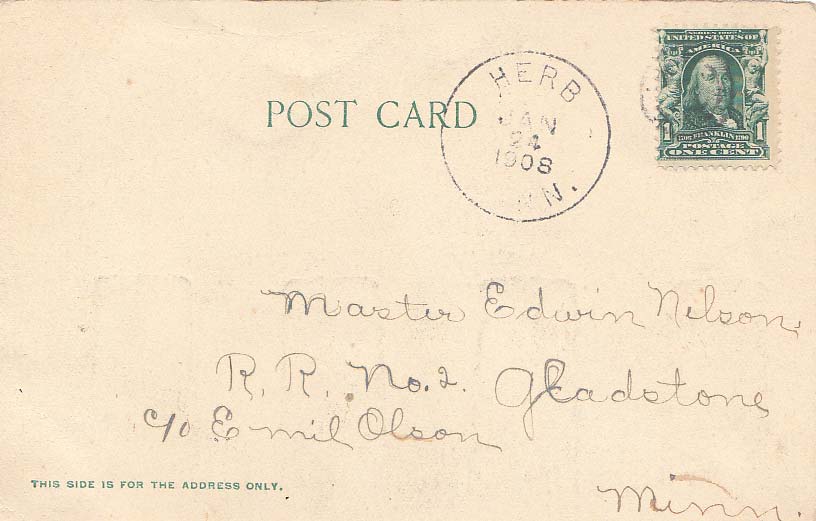 SERIES 1902
UNITED STATES OF
AMERICA
1 1706 FRANKLIN 1790 1
POSTAGE
ONE CENT
POST CARD
HERB
JAN
24
1908
NN.
Master Edwin Nelson,
R. R. No. 2. Gladstone
c/o Emil Olson
Minn.
THIS SIDE IS FOR THE ADDRESS ONLY.